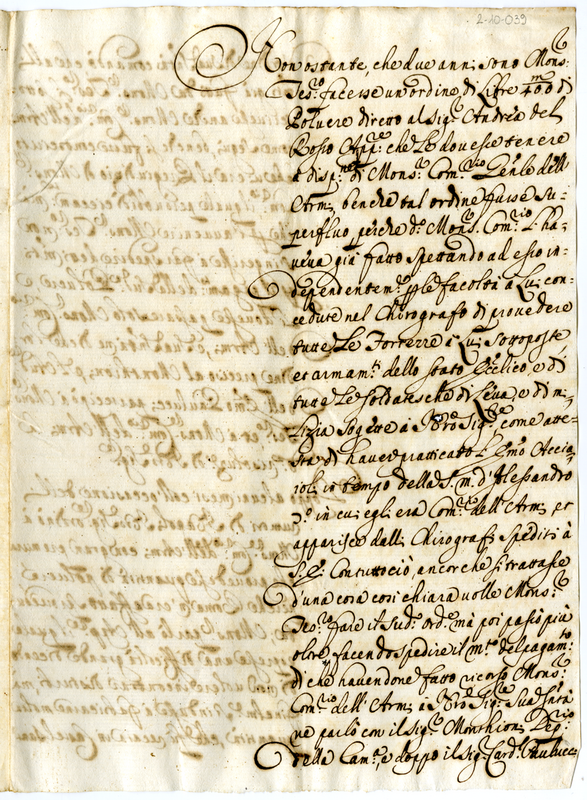 2-10-039
Non ostante, che due anni sono Mons.r
Tes.ro facesse un ordine di Libre 400 di
Poluere diretto al Sig.r Andrea del
Rosio App.re che Le douesse tenere
a disp.ne di Mons.r Com.rio Gen.le dell'
Armi, benche tal ordine fusse su-
perfluo perche d.o Mons.r Com.rio l'ha-
ueua già fatto spettando ad esso in-
dependentem.e p le facoltà a Lui con-
cedute nel Chirografo di prouedere
tutte Le Forterre à Lui Sottoposte
et armam.ti dello Stato Eccl.ico, e di
tutte Le Soldatesche di Leua, e di mi-
lizia Sogette à N'ro Sig.re come atte-
sta di hauer pratticato l'Em.o Accia-
ioli in tempo della S. m. d'Alessandro
in cui egli era Com.rio dell'Armi, et
apparisce dalli Chirografi Spediti à
S. E. Contuttociò, ancorche si trattasse
d'una cosa così chiara uolle Mons.r
Teo.ro fare il sud.o ord.e mà poi passò più
oltre facendo spedire il m.to del pagam.to
di che hauendone fatto ricorso Mons.r
Com.rio dell'Armi à N'ro Sig.re Sua San.tà
ne parlò con il Sig.r Monthioni Dep.rio
della Cam.a, e doppo il Sig.r Card. Paulucci